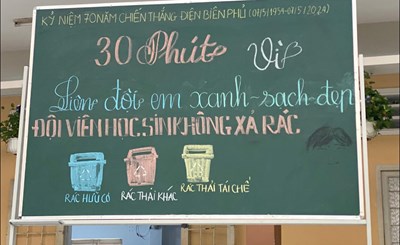 KỶ NIỆM 70 NĂM CHIẾN THẮNG ĐIỆN BIÊN PHỦ (07/5/1954-07/5/2024)
30 Phút Vì
Liên đội em xanh-sạch-đẹp
ĐỘI VIÊN HỌC SINH KHÔNG XẢ RÁC.
RÁC HỮU CƠ RÁC THẢI KHÁC RÁC THẢI TÁI CHẾ